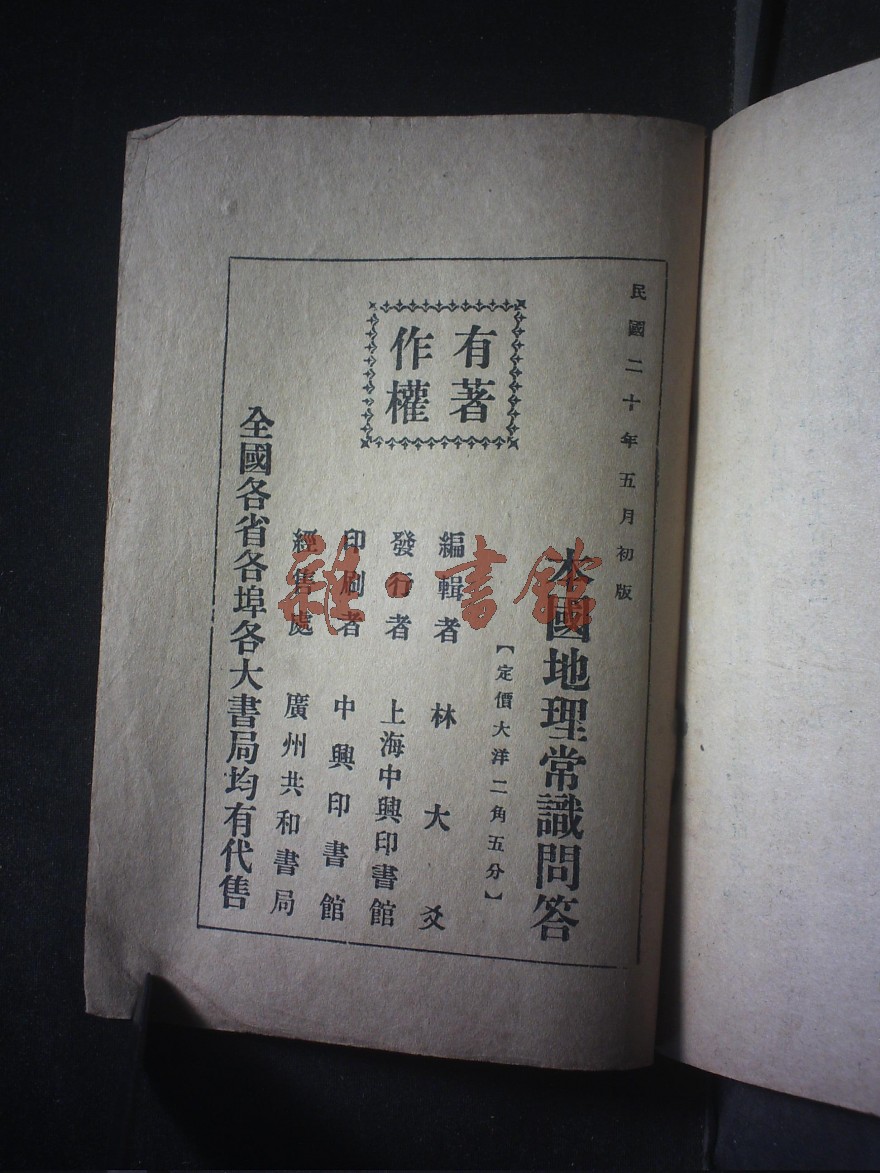 民國二十年五月初版
本國地理常識問答
【定價大洋二角五分】
有著
作權
編輯者 林大爻
發行者 上海中興印書館
印刷者 中興印書館
經售處 廣州共和書局
全國各省各埠各大書局均有代售
雜·書館